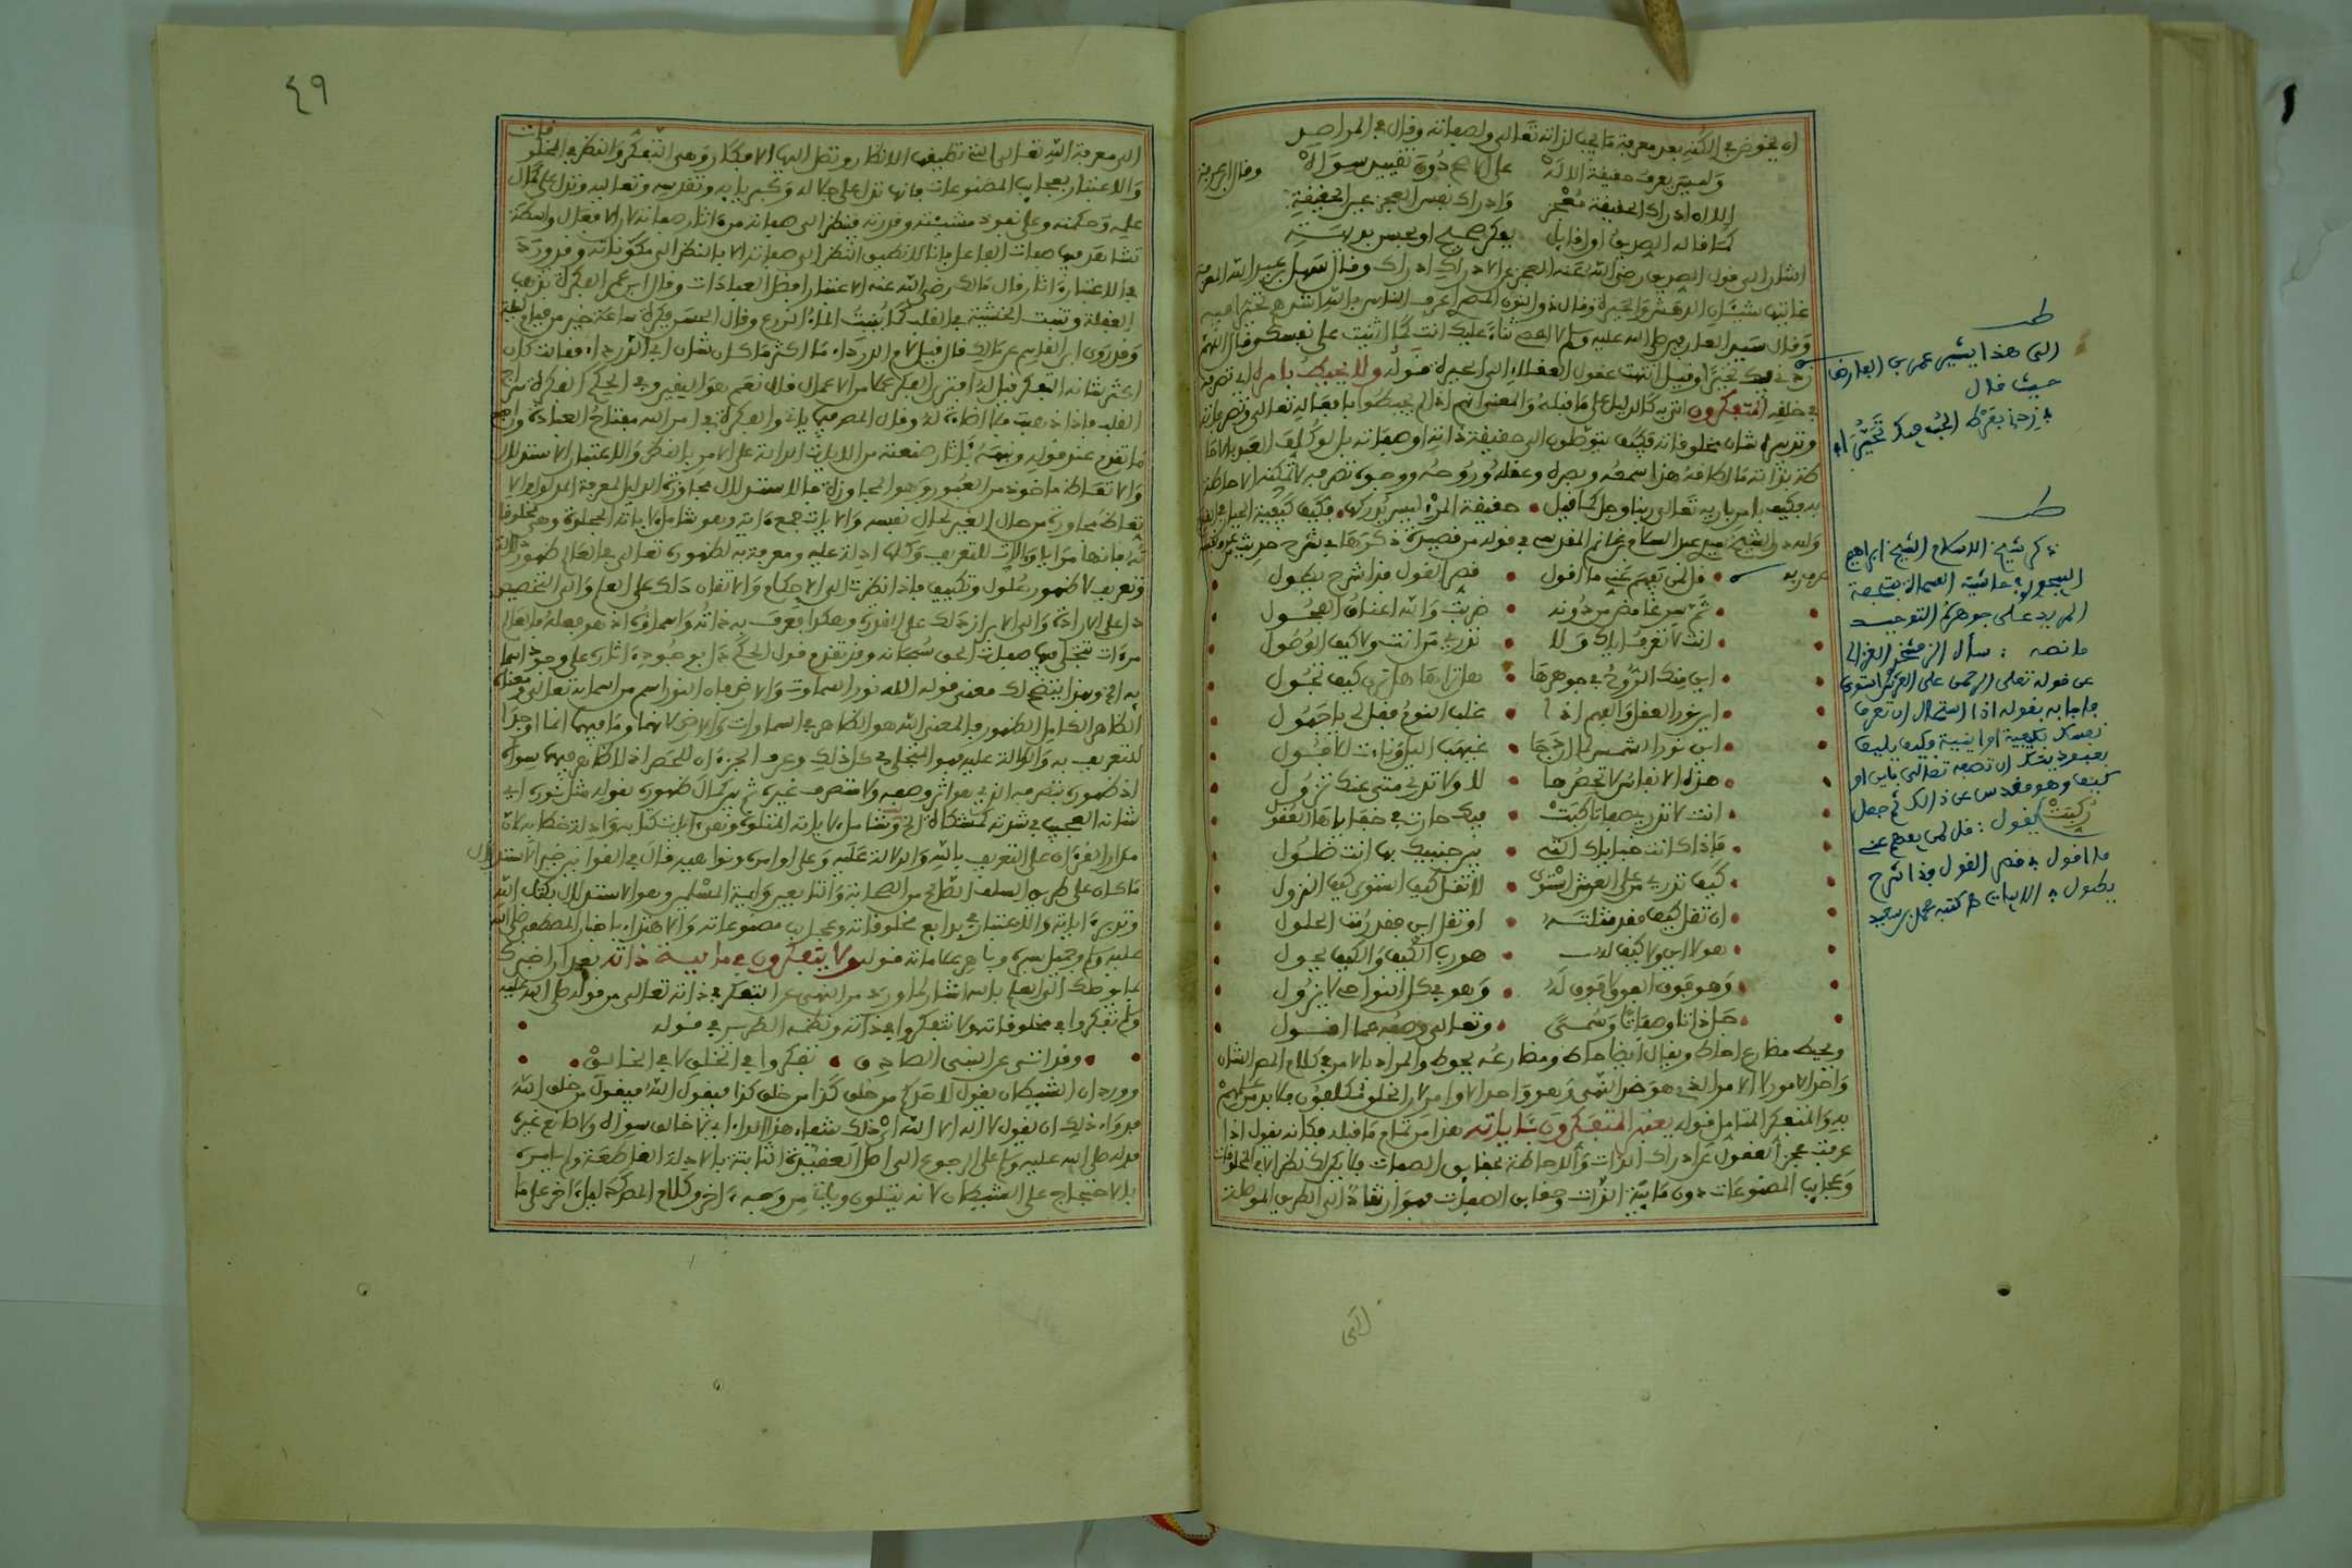 ان يخوض في الكنه بعد معرفة ما يجب لذاته تعالى ولصفاته وقال في المراصد
وليس يعرف حقيقة الالاه على الاصح دون تقييد سواه وقال
الا ان ادراك الحقيقة معجز وادراك نفس العجز عين الحقيقة
كما قاله الصديق اول قايل بفكر صحيح او بحسن بديهة
اشار الى قول الصديق رضي الله عنه العجز عن الادراك ادراك وقال سهل بن عبد الله المعرفة
غايتها شيئان الدهش والحيرة وقال ذو النون المصري اعرف الناس بالله اشدهم تحيرا فيه
وقال سيد العارفين صلى الله عليه وسلم لا احصي ثناء عليك انت كما اثنيت على نفسك وقال اللهم
زدني فيك تحيرا وقيل انتهت عقول العقلاء الى الحيرة قوله ولا يحيط بامره اي تصرفه
في خلقه المتفكرون اتى به كالدليل على ما قبله والمعنى انهم اذا لم يحيطوا بافعاله تعالى وتصرفاته
وتدبيره شان مخلوقاته فكيف يتوصلون الى حقيقة ذاته او صفاته بل لو كلف العبد بالاحا
طة بذاته ما اطاقه هذا سمعه وبصره وعقله وروحه ووجوه تصرفه لا تمكنه الاحاطة
به فكيف بامر باريه تعالى ربنا وجل كما قيل حقيقة المرء ليس يدركها فكيف كيفية الجبار في القدم
ولله در الشيخ سيدي عبد السلام بن غانم المقدسي في قوله من قصيدة ذكرها في شرح حديث من عرف نفسه
عرف ربه قل لمن يفهم عني ما اقول قصر القول فذا شرح يطول
ثم سر غامض من دونه ضربت والله اعناق الفحول
انت لا تعرف اياك ولا تدري من انت ولا كيف الوصول
اين منك الروح في جوهرها هل تراها هل ترى كيف تجول
اين نور العقل والفهم اذا غلب النوم فقل لي يا جهول
اين نور الشمس لما ادرجها غيهب الليل وانت لا افول
هذه الانفاس لا تحصرها لا ولا تدري متى عنك تزول
انت لا تدري صفاتا ركبت فيك حارت في خفاياها العقول
فاذا كانت خباياك التي بين جنبيك بها انت ضلول
كيف تدري من على العرش استوى لا تقل كيف استوى كيف النزول
ان تقل كيف فقد مثلته او تقل اين فقد رمت الحلول
هو لا اين ولا كيف له هو رب الكيف والكيف يحول
وهو فوق الفوق لا فوق له وهو في كل النواحي لا يزول
جل ذاتا وصفاتا وسمى وتعالى وصفه عما اقول
ويحيط مضارع احاط ويقال ايضا حاط ومضارعه يحوط والمراد بالامر في كلام المص الشان
واحد الامور لا الامر الذي هو ضد النهي وهو واحد الاوامر لان الخلق مكلفون فلا بد من علمهم
به والمتفكر المتامل قوله يعتبر المتفكرون بآياته هذا من تمام ما قبله فكانه يقول اذا
عرفت عجز العقول عن ادراك الذات والاحاطة بحقايق الصفات فلا يكن لك نظر الا في المخلوقات
وعجايب المصنوعات دون ماهية الذات وحقايق الصفات فهو ارشاد الى الطريق الموصلة
طـ
الى هذا يشير عمر بن الفارض
حيث قال
زدني بفرط الحب فيك تحيرا
طـ
ذكر شيخ الاسلام الشيخ ابراهيم
البيجوري في حاشيته المسماة بتحفة
المريد على جوهرة التوحيد
ما نصه : سأل الزمخشري الغزالي
عن قوله تعلى الرحمن على العرش استوى
فاجابه بقوله اذا استحال ان تعرف
نفسك بكيفية او اينية فكيف يليق
بعبوديتك ان تصفه تعالى باين او
كيف وهو مقدس عن ذالك ثم جعل
يقول : قل لمن يفهم عني
ما اقول قصر القول فذا شرح
يطول الابيات
ركبت
التي
٤٩
الى معرفة الله تعالى التي تطيقها الانظار وتصل اليها الافكار وهي التفكر والنظر في المخلوقات
والاعتبار بعجايب المصنوعات فانها تدل على جلاله وكبريايه وتقديسه وتعاليه وتدل على كمال
علمه وحكمته وعلى نفوذ مشيئته وقدرته فينظر الى صفاته من آثار صفاته لان الافعال واسطة
تشاهد فيها صفات الفاعل فانا لا نطيق النظر الى صفاته الا بالنظر الى مكوناته وقد ورد
في الاعتبار آثار قال مالك رضي الله عنه الاعتبار افضل العبادات وقال ابن عمر الفكرة تذهب
الغفلة وتنبت الخشية في القلب كما ينبت الماء الزرع وقال الحسن فكرة ساعة خير من قيام ليلة
وقد روى ابن القاسم عن مالك قال قيل لام الدرداء ما اكثر ما كان شان ابي الدرداء فقالت كان
اكثر شانه التفكر قيل له افترى الفكر عملا من الاعمال قال نعم هو اليقين وفي الحكم الفكرة سراج
القلب فاذا ذهبت فلا اضاءة له وقال المص فيما ياتي والفكرة في امر الله مفتاح العبادة وراجع
ما تقدم عند قوله ونبهه بآثار صنعته من الايات الدالة على الامر بالنظر والاعتبار الاستدلال
والاتعاظ ماخوذ من العبور وهو المجاوزة فالاستدلال مجاوزة الدليل لمعرفة المدلول والا
تعاظ مجاوزة من حال الغير لحال نفسه والايات جمع آية وهو شامل لآياته المجلوة وهي مخلوقا
ته فانها مرايا وآلات للتعريف وكلها ادلة عليه ومعرفة به لظهوره تعالى في العالم ظهور دلالة
وتعريف لا ظهور حلول وتكييف فاذا نظرت الى الاحكام والاتقان دلك على العلم والى التخصيص
دل على الارادة والى الابراز دلك على القدرة وهكذا فعرفت به ذاته واسماؤه اذ هو فعله فالعالم
مرءات تتجلى فيها صفات الحق سبحانه وقد تقدم قول الحكم دل بوجود آثاره على وجود اسما
يه الخ وبهذا يتضح لك معنى قوله الله نور السماوات والارض فان النور اسم من اسمايه تعالى ومعناه
الظاهر الكامل الظهور فالمعنى الله هو الظاهر في السماوات والارض لانهما وما فيهما انما اوجدا
للتعريف به والدلالة عليه فهو المتجلي في كل ذلك وعرف الجزءان للحصر اذ لا ظاهر فيهما سواه
اذ ظهوره بتصرفه الذي هو اثر وصفه ولا متصرف غيره ثم بين كمال ظهوره بقوله مثل نوره اي
شانه العجيب في شدته كمشكاة الخ وشامل لآياته المتلوة وهي آيات كتابه وادلة خطابه لان
مدار القرءان على التعريف بالله والدلالة عليه وعلى اوامره ونواهيه قال في القواعد خير الاستدلال
ما كان على طريق السلف الصالح من الصحابة والتابعين وايمة المسلمين وهو الاستدلال بكتاب الله
وتدبر آياته والاعتبار في بدايع مخلوقاته وعجايب مصنوعاته والاهتداء باخبار المصطفى صلى الله
عليه وسلم وجميل سيره وباهر علاماته قوله ولا يتفكرون في ماهية ذاته بعد ان اخبرك
بما يوصلك الى العلم بالله اشار لما ورد من النهي عن التفكر في ذاته تعالى من قوله صلى الله عليه
وسلم تفكروا في مخلوقاته ولا تتفكروا في ذاته ونظمه الطرسي في قوله
وقد اتى عن النبي الصادق تفكروا في الخلق لا في الخالق
وورد ان الشيطان يقول لاحدكم من خلق كذا من خلق كذا فيقول الله فيقول من خلق الله
فدواء ذلك ان يقول لا اله الا الله اي ذلك شفاء هذا الداء اي لا خالق سواه ولا صانع غيره
فدل صلى الله عليه وسلم على الرجوع الى اصل العقيدة الثابتة بالادلة القاطعة وليس
بالاحتجاج على الشيطان لانه يتلون وياتي من وجه آخر وكلام المص كقول آخر على ما